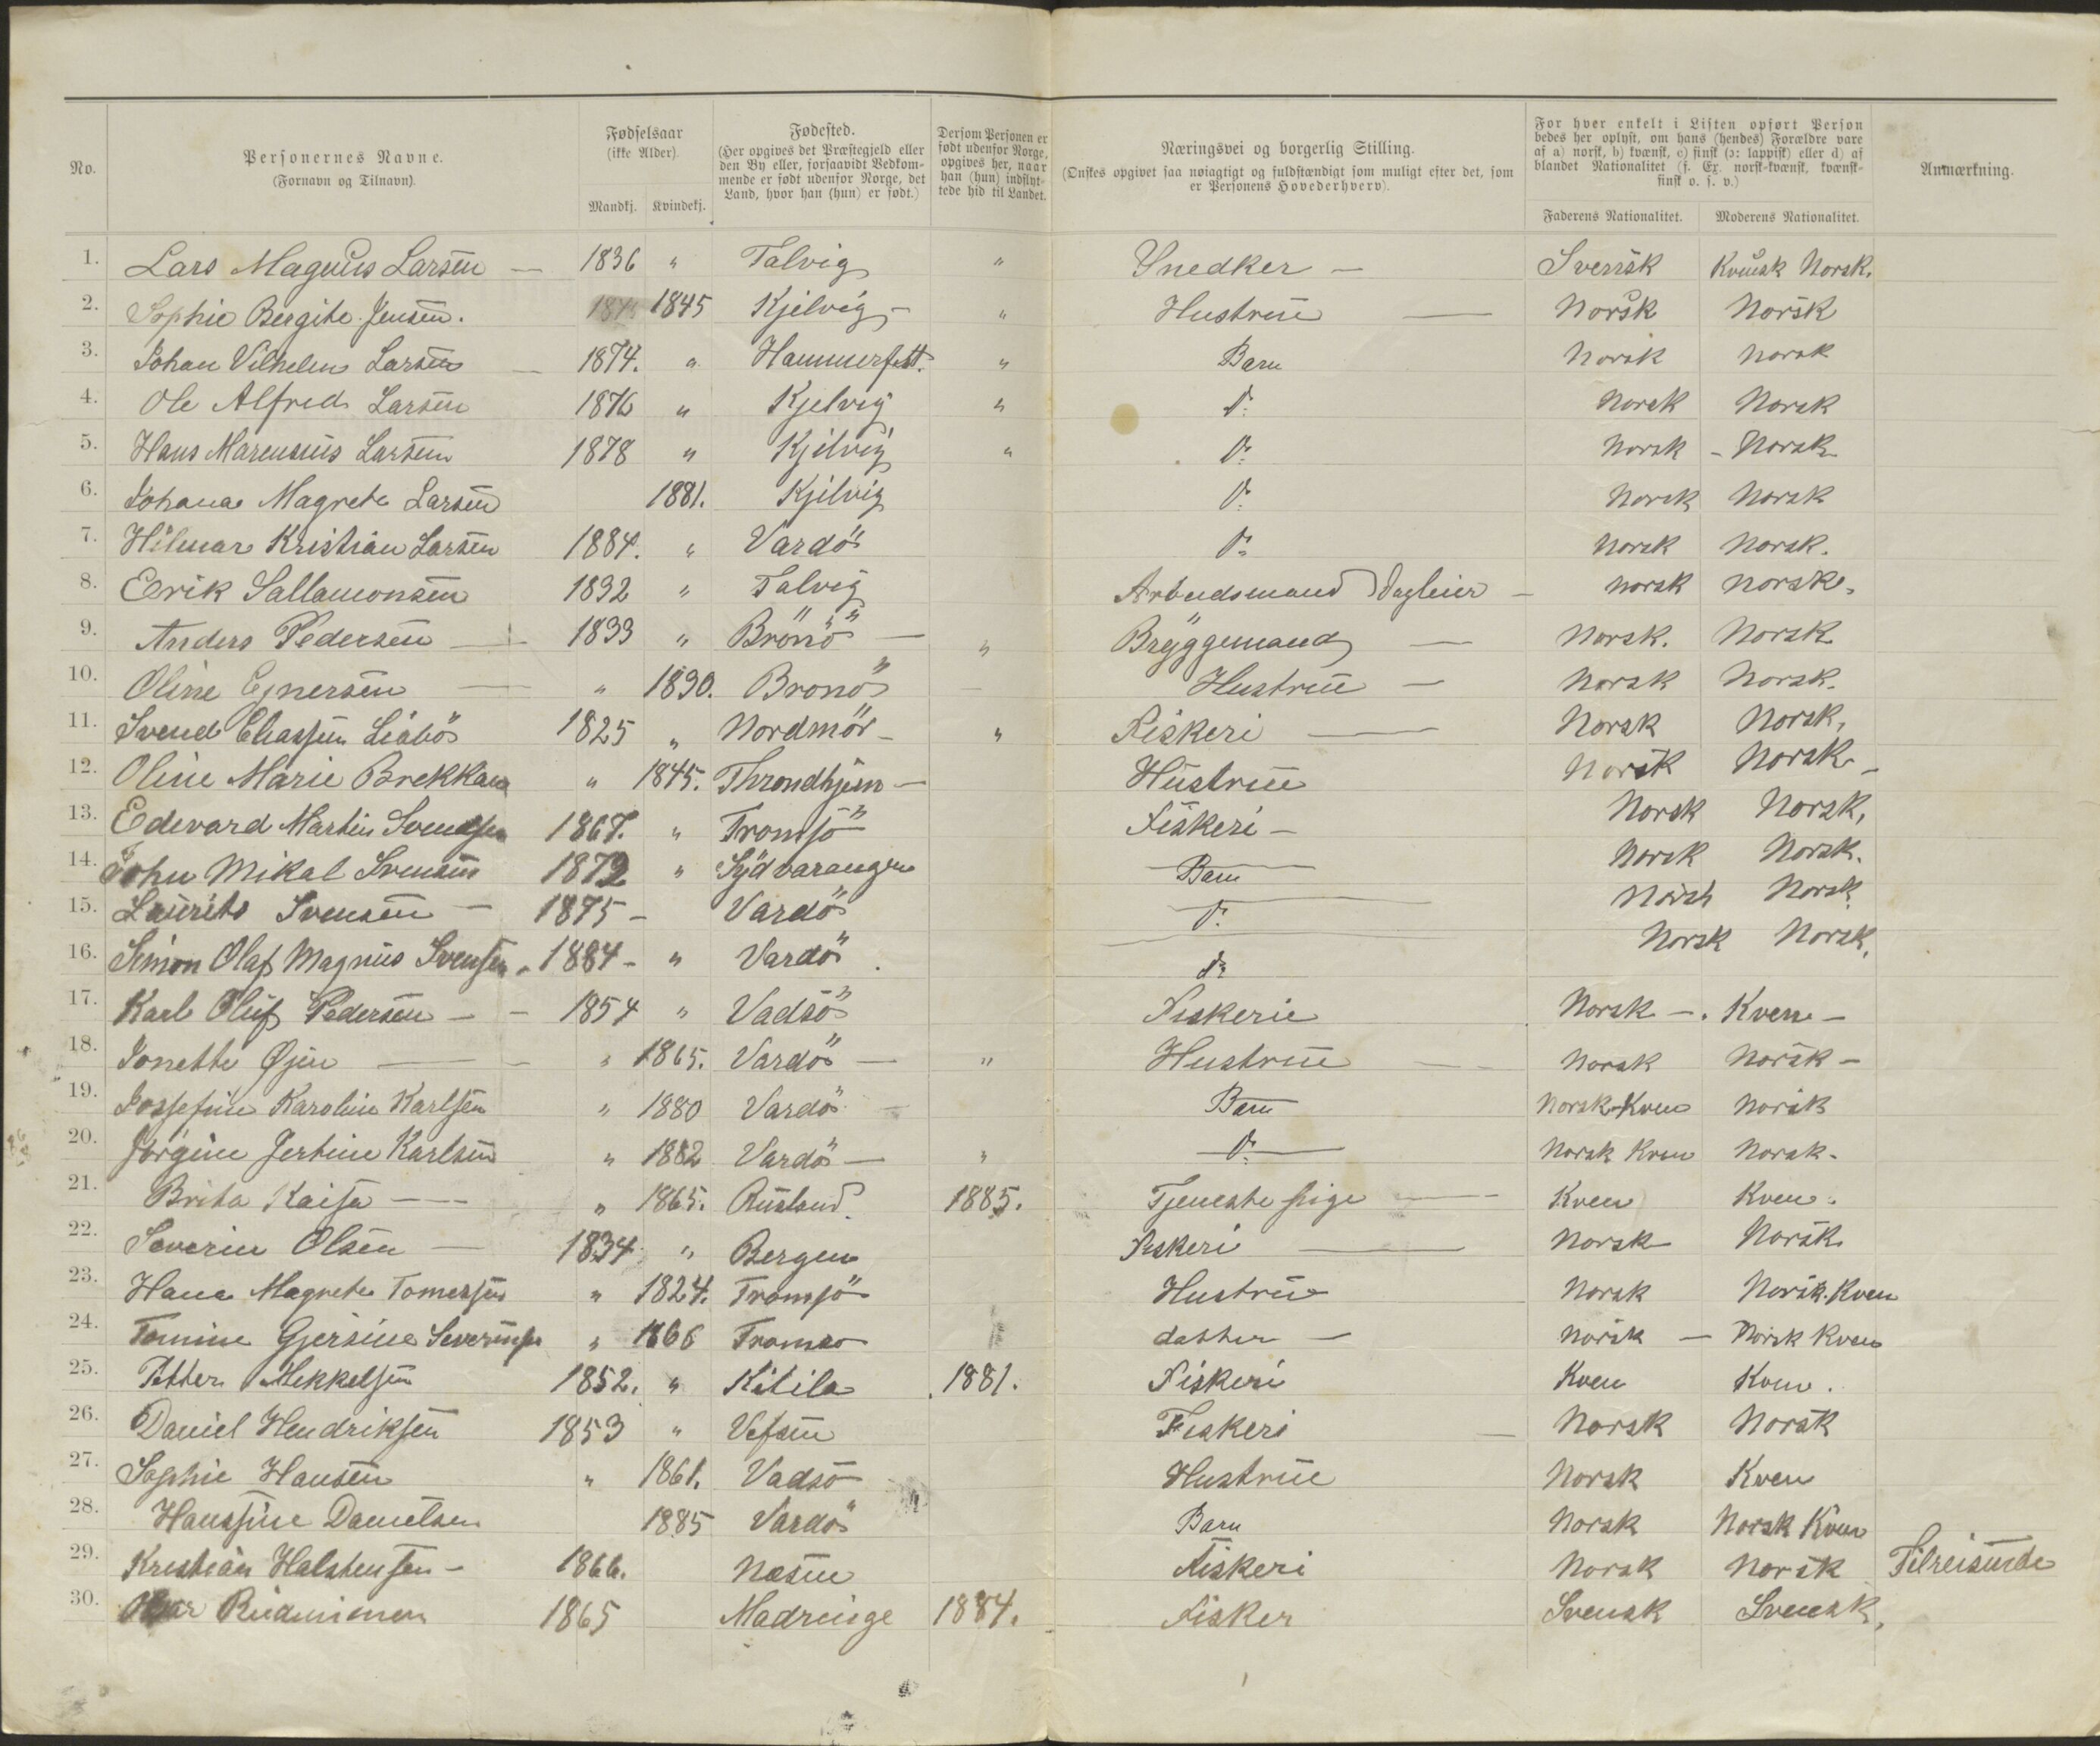 No.
Personernes Navne.
(Fornavn og Tilnavn).
Fødselsaar
(ikke Alder).
Mandkj. Kvindekj.
Fødested.
(Her opgives det Præstegjeld eller
den By eller, forsaavidt Vedkom-
mende er født udenfor Norge, det
Land, hvor han (hun) er født.)
Dersom Personen er
født udenfor Norge,
opgives her, naar
han (hun) indflyt-
tede hid til Landet.
Næringsvei og borgerlig Stilling.
(Ønskes opgivet saa nøiagtigt og fuldstændigt som muligt efter det, som
er Personens Hovederhverv).
For hver enkelt i Listen opført Person
bedes her oplyst, om hans (hendes) Forældre vare
af a) norsk, b) kvænsk, c) finsk (ɔ: lappisk) eller d) af
blandet Nationalitet (f. Ex. norsk-kvænsk, kvænsk-
finsk o. s. v.)
Faderens Nationalitet. Moderens Nationalitet.
Anmærkning.
1. Lars Magnus Larsen — 1836 " Talvig " Snedker — Svensk Kvensk Norsk.
2. Sophie Bergite Jensen. 1845 Kjelvig - " Hustru — Norsk Norsk
3. Johan Vilhelm Larsen — 1874. " Hammerfest. " Barn Norsk Norsk
4. Ole Alfred Larsen 1876 " Kjelvig " do. Norsk Norsk
5. Hans Marensius Larsen 1878 " Kjelvig " do. Norsk - Norsk
6. Johana Magrete Larsen 1881. Kjelvig do. Norsk Norsk
7. Hilmar Kristian Larsen 1884. " Vardö do. Norsk Norsk.
8. Eerik Sallamonsen 1832 " Talvig Arbudsmand Dagleier — Norsk Norsk.
9. Anders Pedersen — 1833 " Brönö — " Bryggemand — Norsk. Norsk
10. Oline Ejnersen — " 1830. Bronö Hustru — Norsk Norsk.
11. Svend Eliassen Liabö 1825 " Nordmör - " Fiskeri — Norsk Norsk,
12. Oline Marie Brekkan " 1845. Throndhjem — Hustru Norsk Norsk -
13. Edevard Martin Svendsen 1867. " Tromsö Fiskeri — Norsk Norsk,
14. John Mikal Svensen 1872 " Sydvaranger Barn Norsk Norsk.
15. Laurits Svensen — 1875 - Vardö do. Norsk Norsk
16. Simon Olaf Magnus Svensen 1884 - " Vardö do. Norsk Norsk,
17. Karl Oluf Pedersen — 1854 " Vadsö Fiskerie Norsk — Kven -
18. Jonette Øjen — " 1865. Vardö — " Hustru — Norsk Norsk -
19. Jossefine Karoline Karlsen " 1880 Vardö Barn Norsk-Kven Norsk
20. Jörgine Jertine Karlsen " 1882 Vardö — " do. Norsk Kven Norsk -
21. Brita Kaisa — " 1865. Rusland. 1885. Tjeneste pige — Kven Kven.
22. Severin Olsen — 1834 " Bergen Fiskeri — Norsk Norsk
23. Hana Magrete Tomassen " 1824. Tromsö Hustru Norsk Norsk. Kven
24. Tomine Gjersine Severinsen " 1866 Tromso datter — Norsk — Norsk Kven
25. Petter Mekkelsen 1852. " Kitila 1881. Fiskeri Kven Kven.
26. Daniel Hendriksen 1853 " Vefsen Fiskeri — Norsk Norsk
27. Sophie Hansen " 1861. Vadsö Hustrue Norsk Kven
28. Hanssine Danielsen 1885 Vardö Barn Norsk Norsk Kven
29. Kristian Halstensen - 1866. Næsne Fiskeri Norsk Norsk Tilreisende
30. 1865 1884. Fisker Svensk Svensk,